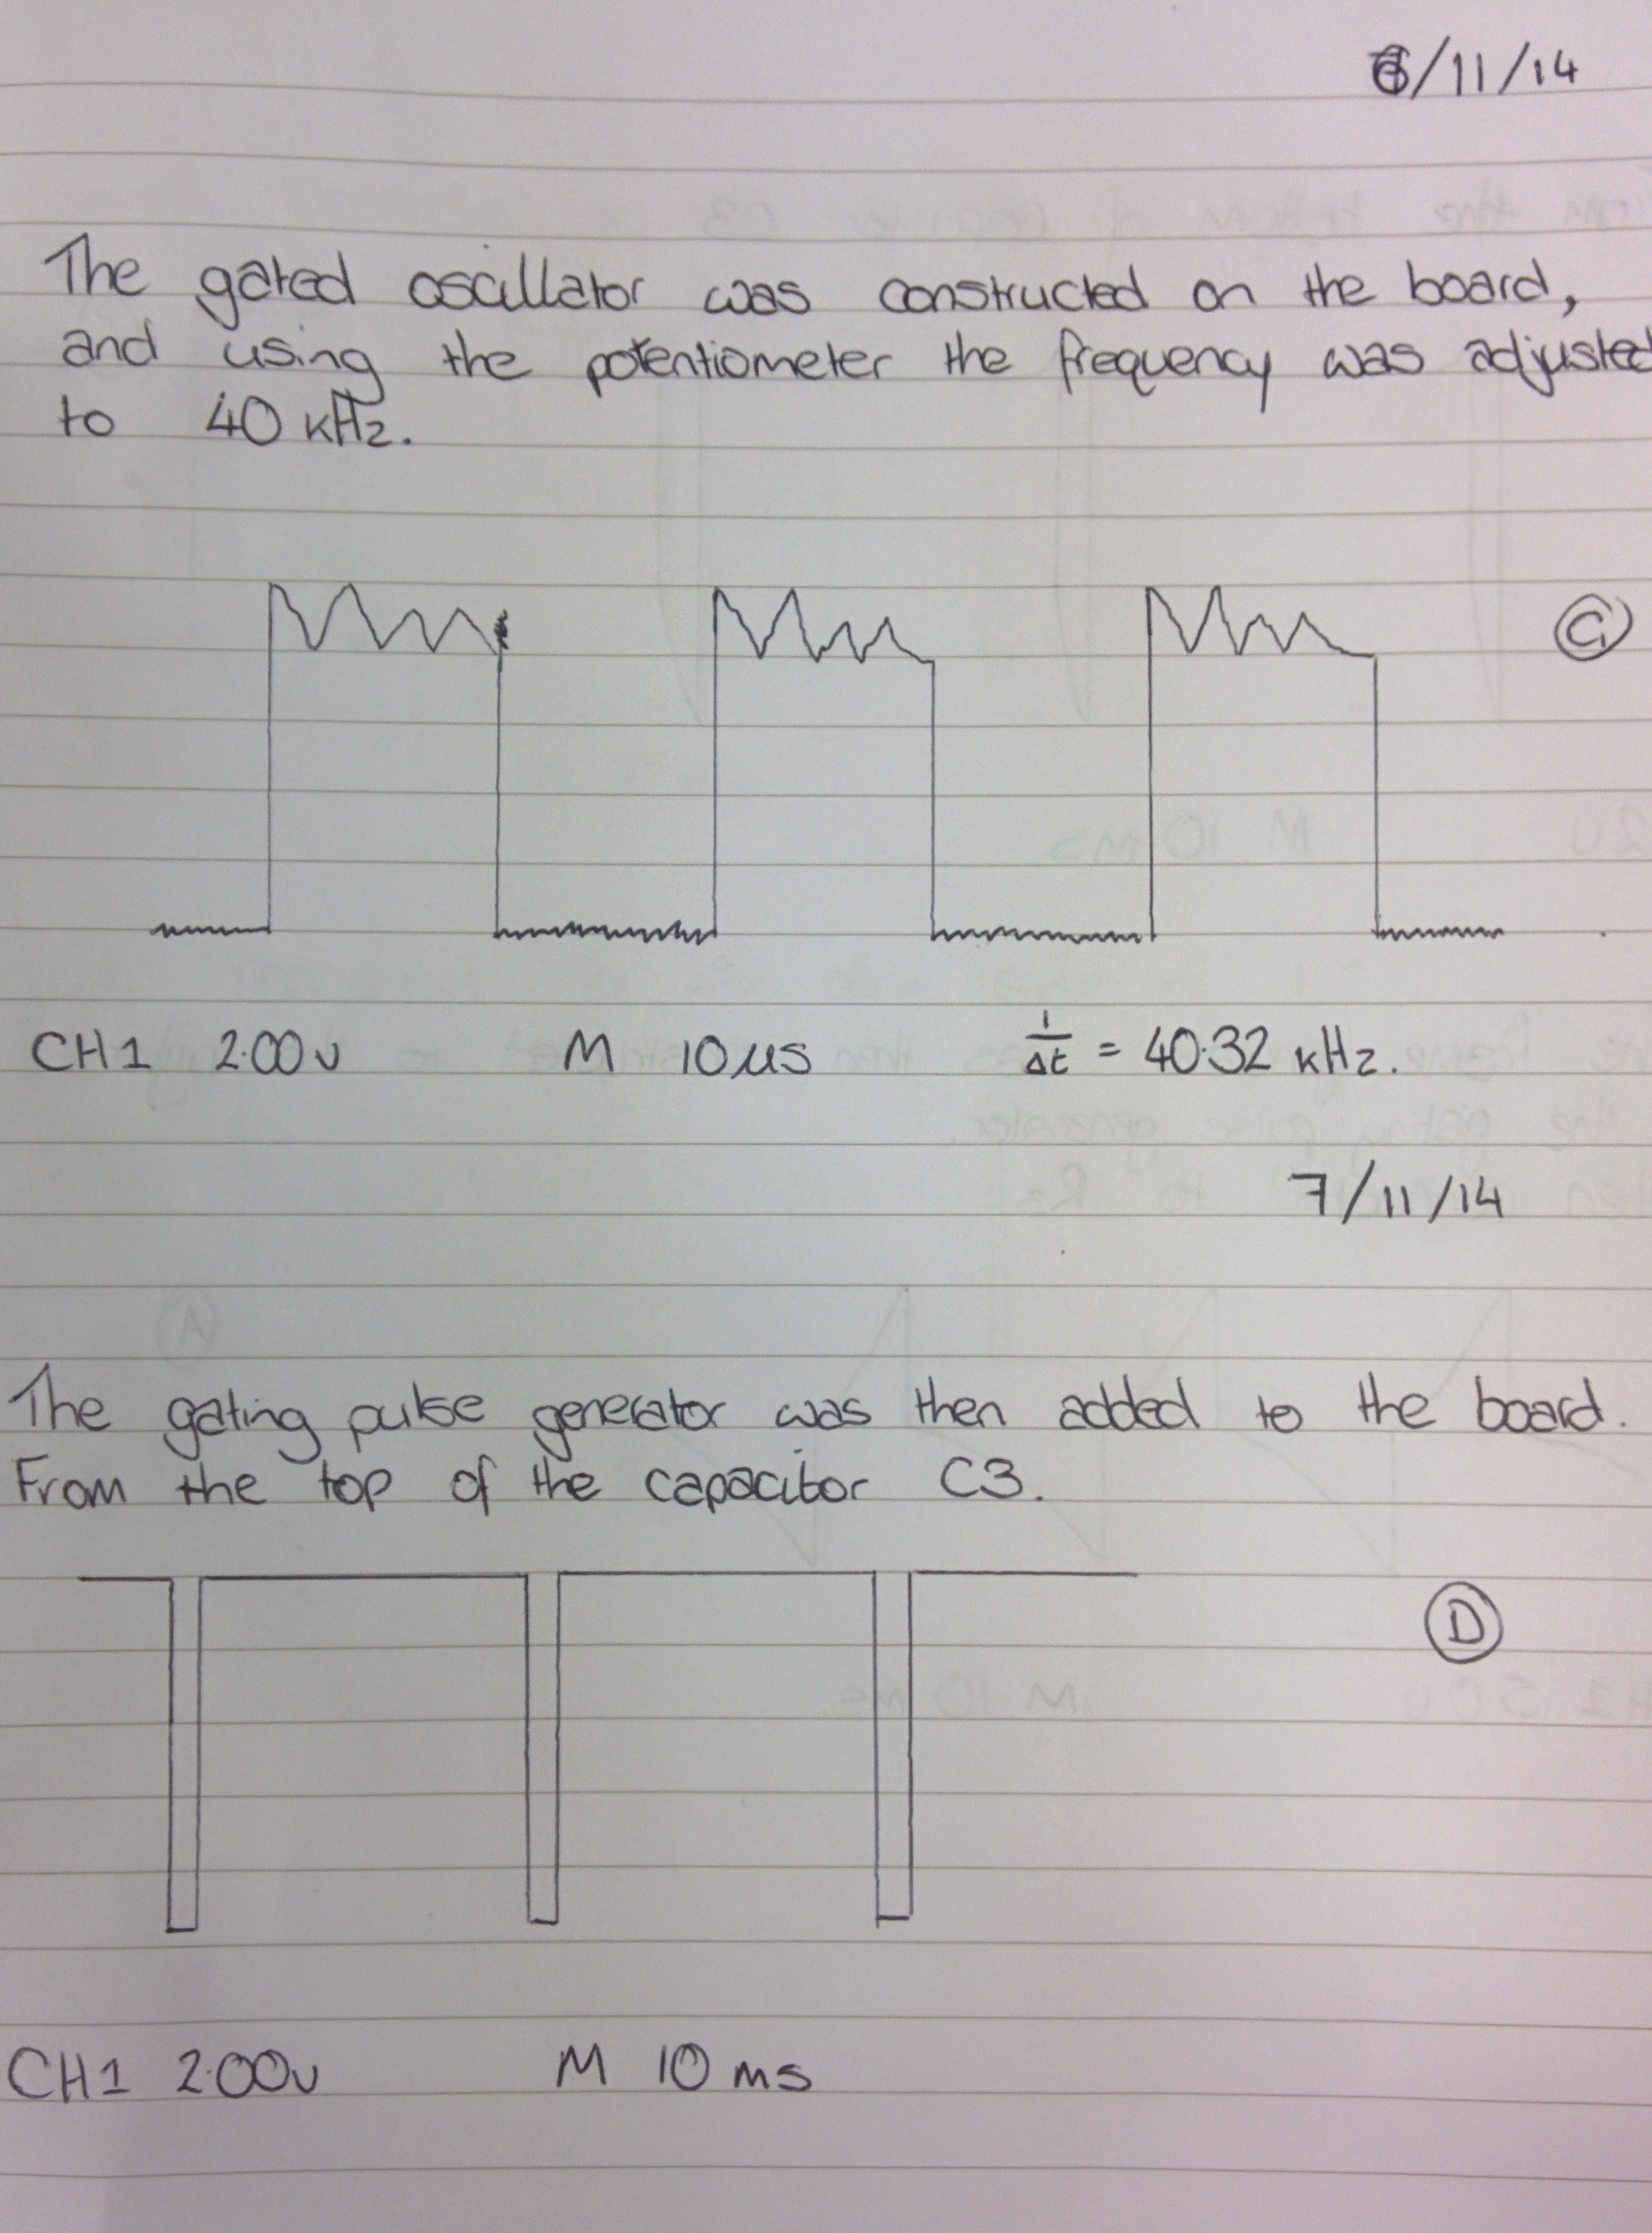 6/11/14
The gated oscillator was constructed on the board,
and using the potentiometer the frequency was adjusted
to 40 kHz.
C
CH1 2.00v M 10us 1/Δt = 40.32 kHz.
7/11/14
The gating pulse generator was then added to the board.
From the top of the capacitor C3.
D
CH1 2.00v M 10 ms